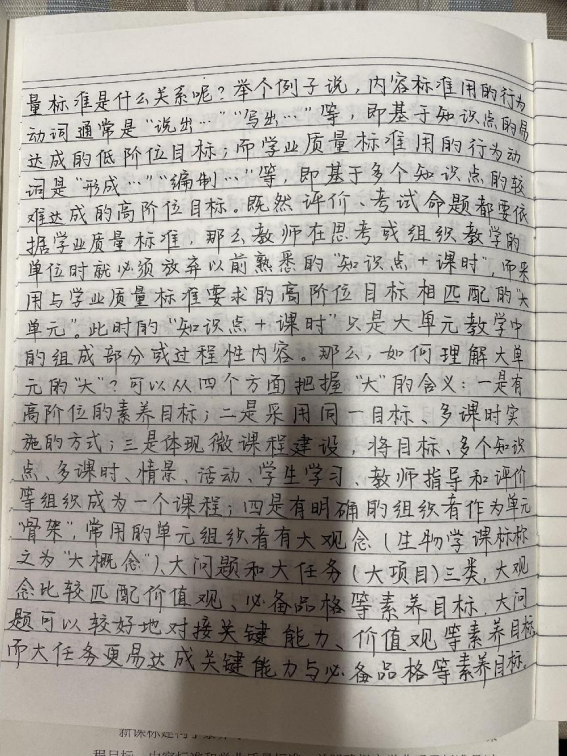 量标准是什么关系呢？举个例子说，内容标准用的行为
动词通常是“说出…”“写出…”等，即基于知识点的易
达成的低阶位目标；而学业质量标准用的行为动
词是“形成…”“编制…”等，即基于多个知识点的较
难达成的高阶位目标。既然评价、考试命题都要依
据学业质量标准，那么教师在思考或组织教学的
单位时就必须放弃以前熟悉的“知识点+课时”，而采
用与学业质量标准要求的高阶位目标相匹配的“大
单元”。此时的“知识点+课时”只是大单元教学中
的组成部分或过程性内容。那么，如何理解大单
元的“大”？可以从四个方面把握“大”的含义：一是有
高阶位的素养目标；二是采用同一目标、多课时实
施的方式；三是体现微课程建设，将目标、多个知识
点、多课时、情景、活动、学生学习、教师指导和评价
等组织成为一个课程；四是有明确的组织者作为单元
“骨架”，常用的单元组织者有大观念（生物学课标称
之为“大概念”）、大问题和大任务（大项目）三类，大观
念比较匹配价值观、必备品格等素养目标，大问
题可以较好地对接关键能力、价值观等素养目标，
而大任务更易达成关键能力与必备品格等素养目标。